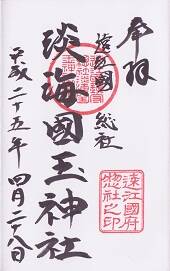 奉拝
遠江國 総社
淡海國玉神社
平成二十五年 四月二十八日
遠江國府
惣社之印